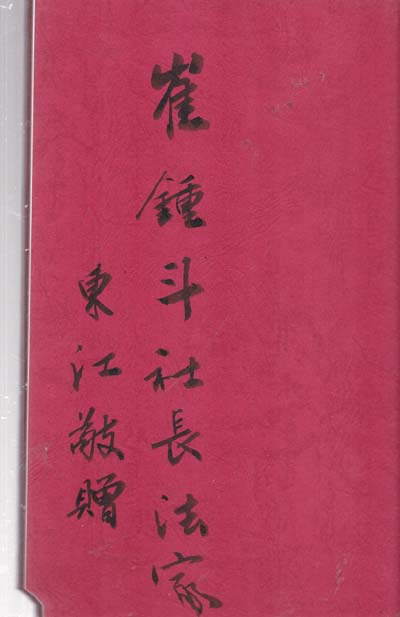 崔鍾斗社長法家
東江敬贈